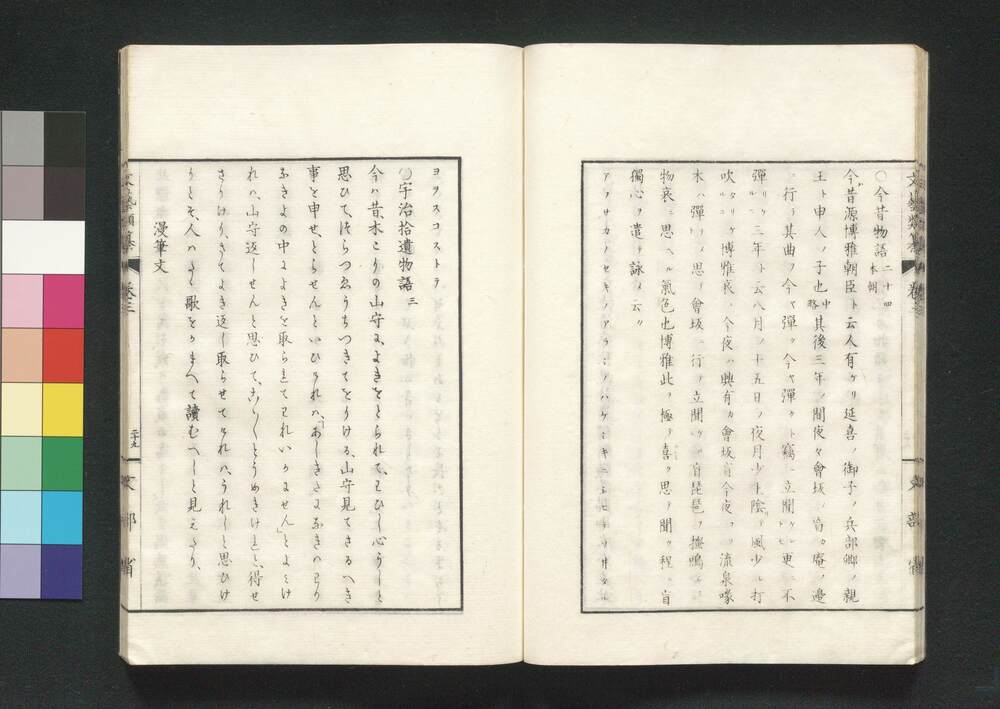 〇今昔物語 二十四 本朝
今昔源博雅朝臣ト云人有ケリ延喜ノ御子ノ兵部卿ノ親
王ト申人ノ子也 中略 其後三年ノ間夜々會坂ノ盲カ庵ノ邊
行テ其曲ヲ今ヤ彈ク今ヤ彈クト竊ニ立聞ケレトモ更ニ不
彈リケルニ三年ト云八月ノ十五日ノ夜月少シ上陰テ風少シ打
吹タリケルニ博雅哀レ今夜ハ興有カ會坂盲今夜コソ流泉啄
木ハ彈ラメト思テ會坂ニ行テ立聞ケルニ盲琵琶ヲ搔鳴シテ
物哀ニ思ヘル氣色也博雅此ヲ極テ喜ク思テ聞ク程ニ盲
獨心ヲ遣テ詠シテ云ク
アフサカノセキノアラシノハケシキニシヒテソ井タル
ヨヲスコストテ
〇宇治拾遺物語 三
今ハ昔、木こりの山守に、よきをとられて、わひし心うしと
思ひて、つらつゑうちつきてをりける、山守見てさるへき
事を申せ、とらせんといひけれハ、「あしきたになきハわり
なきよの中によきを取られてわれいかにせん」とよミけ
れハ、山守返しせんと思ひて、こゝくとうめきけれと、得せ
さりけり、さてよき返し取らせてけれハ、うれしと思ひけ
りとそ、人ハたゝ歌をかまへて讀むへしと見えたり、
漫筆文
文藝類纂
卷三
二十九
文部省
文藝類纂
卷三
文部省